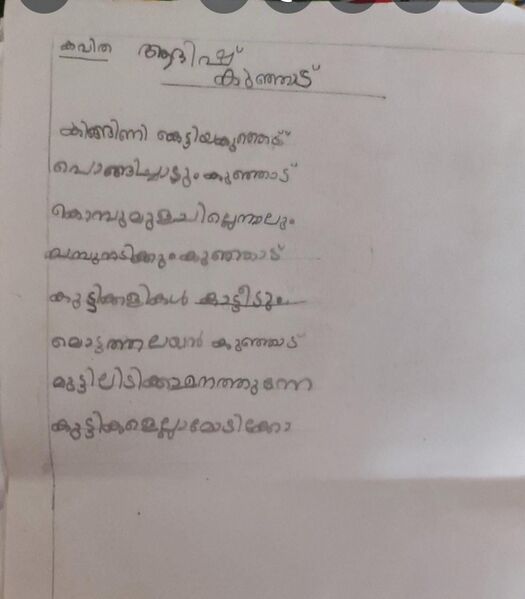 കവിത ആദിഷ്
കുഞ്ഞാട്
കിങ്ങിണി കെട്ടിയകുഞ്ഞാട്
പൊങ്ങിച്ചാടും കുഞ്ഞാട്
കൊമ്പുമുളച്ചില്ലെന്നാലും
കുഞ്ഞാട്
കുട്ടിക്കളികൾ കാട്ടീടും
മൊട്ടത്തലയൻ കുഞ്ഞാട്
മുട്ടിലിടിക്കാമനത്തുന്നേ
കുട്ടികളെല്ലാമോടിക്കോ